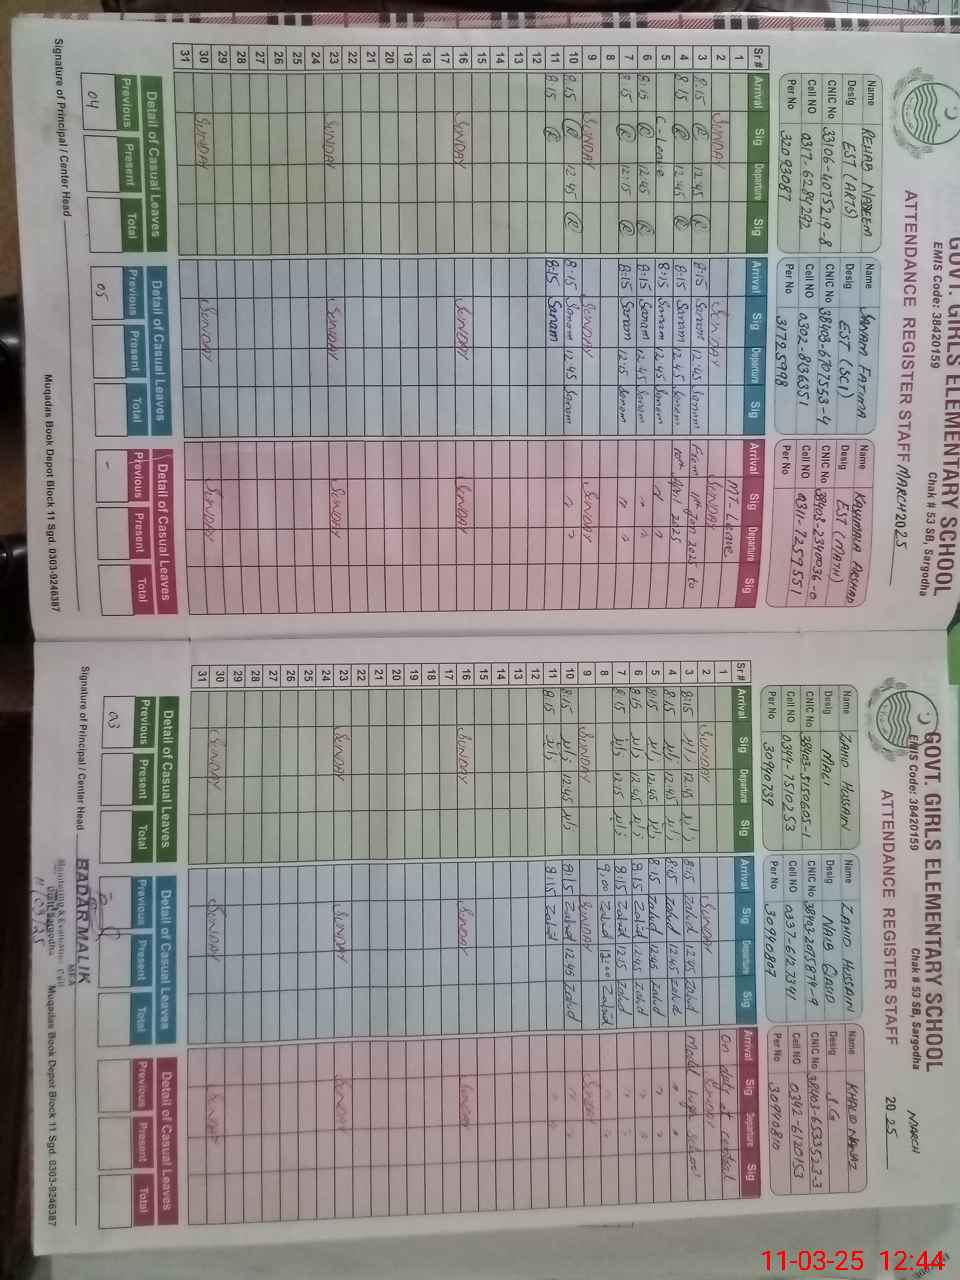 GOVT. GIRLS ELEMENTARY SCHOOL
EMIS Code: 38420159
Chak # 53 SB, Sargodha
ATTENDANCE REGISTER STAFF MARCH 2025
Name REHAB NADEEM
Desig EST (ARTS)
CNIC No 33106-4075219-8
Cell NO 0317-6284292
Per No 32093087
Name SANAM FATIMA
Desig EST (SCI)
CNIC No 38403-6707553-4
Cell NO 0302-8136351
Per No 31725998
Name ARSHAD
Desig EST (MATH)
CNIC No 38403-2340036-0
Cell NO 0311-7259551
Per No
Sr# Arrival Sig Departure Sig Arrival Sig Departure Sig Arrival Sig Departure Sig
1 MT-Leave
2 SUNDAY SUNDAY SUNDAY
3 8:15 R 12:45 R 8:15 Sanam 12:45 Sanam From 11th Jan 2025 to
4 8:15 R 12:45 R 8:15 Sanam 12:45 Sanam 10th April 2025
5 C-Leave 8:15 Sanam 12:45 Sanam
6 8:15 R 12:45 R 8:15 Sanam 12:45 Sanam
7 8:15 R 12:15 R 8:15 Sanam 12:15 Sanam
8
9 SUNDAY SUNDAY SUNDAY
10 8:15 R 12:45 R 8:15 Sanam 12:45 Sanam
11 8:15 R 8:15 Sanam
12
13
14
15
16 SUNDAY SUNDAY SUNDAY
17
18
19
20
21
22
23 SUNDAY SUNDAY SUNDAY
24
25
26
27
28
29
30 SUNDAY SUNDAY SUNDAY
31
Detail of Casual Leaves Detail of Casual Leaves Detail of Casual Leaves
Previous Present Total Previous Present Total Previous Present Total
04 05 -
Signature of Principal / Center Head
Muqadas Book Depot Block 11 Sgd. 0303-9246387
GOVT. GIRLS ELEMENTARY SCHOOL
EMIS Code: 38420159
Chak # 53 SB, Sargodha
MARCH
ATTENDANCE REGISTER STAFF 2025
Name ZAHID HUSSAIN
Desig MALI
CNIC No 38403-5150605-1
Cell NO 0344-7510253
Per No 30940739
Name ZAHID HUSSAIN
Desig NAIB QASID
CNIC No 38403-2075879-9
Cell NO 0337-6127341
Per No 30940807
Name KHALID NAWAZ
Desig S.G
CNIC No 38403-6533523-3
Cell NO 0342-6120153
Per No 30940810
Sr# Arrival Sig Departure Sig Arrival Sig Departure Sig Arrival Sig Departure Sig
1 On duty at central
2 SUNDAY SUNDAY SUNDAY
3 8:15 12:45 8:15 Zahid 12:45 Zahid Model high school
4 8:15 12:45 8:15 Zahid 12:45 Zahid
5 8:15 12:45 8:15 Zahid 12:45 Zahid
6 8:15 12:45 8:15 Zahid 12:45 Zahid
7 8:15 12:15 8:15 Zahid 12:15 Zahid
8 9:00 Zahid 12:00 Zahid
9 SUNDAY SUNDAY SUNDAY
10 8:15 12:45 8:15 Zahid 12:45 Zahid
11 8:15 8:15 Zahid
12
13
14
15
16 SUNDAY SUNDAY SUNDAY
17
18
19
20
21
22
23 SUNDAY SUNDAY SUNDAY
24
25
26
27
28
29
30 SUNDAY SUNDAY SUNDAY
31
Detail of Casual Leaves Detail of Casual Leaves Detail of Casual Leaves
Previous Present Total Previous Present Total Previous Present Total
03
Signature of Principal / Center Head
BADAR MALIK
MEA
Monitoring & Evaluation Cell
Distt: Sargodha
Muqadas Book Depot Block 11 Sgd. 0303-9246387
11-03-25 12:44